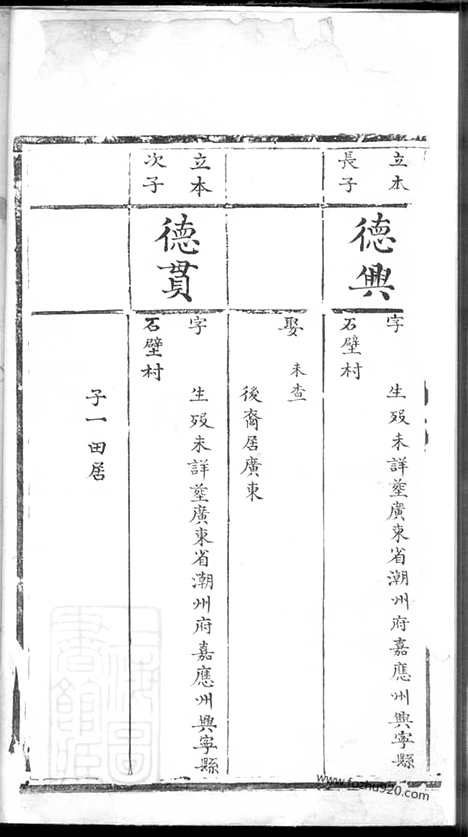 立本
長子
德興
字
生歿未詳塟廣東省潮州府嘉應州興寧縣
石壁村
娶
未查
後裔居廣東
立本
次子
德貫
字
生歿未詳塟廣東省潮州府嘉應州興寧縣
石壁村
子一田居
www.fozhu920.com